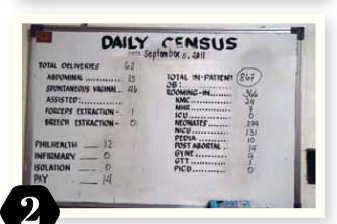 DAILY CENSUS
September 8, 2011
TOTAL DELIVERIES 62
ABDOMINAL ............ 15
SPONTANEOUS VAGINAL... 46
ASSISTED:............
FORCEPS EXTRACTION - 1
BREECH EXTRACTION - 0
PHILHEALTH 12
INFIRMARY 0
ISOLATION 0
PAY 14
TOTAL IN-PATIENT 867
OB:
ROOMING-IN....... 366
KMC............... 24
MHR...............
ICU............... 0
NEONATES.........
NICU.............. 131
PEDIA............. 10
POST ABORTAL.. 14
GYNE..............
GTT............... 1
PICU.............. 0
2